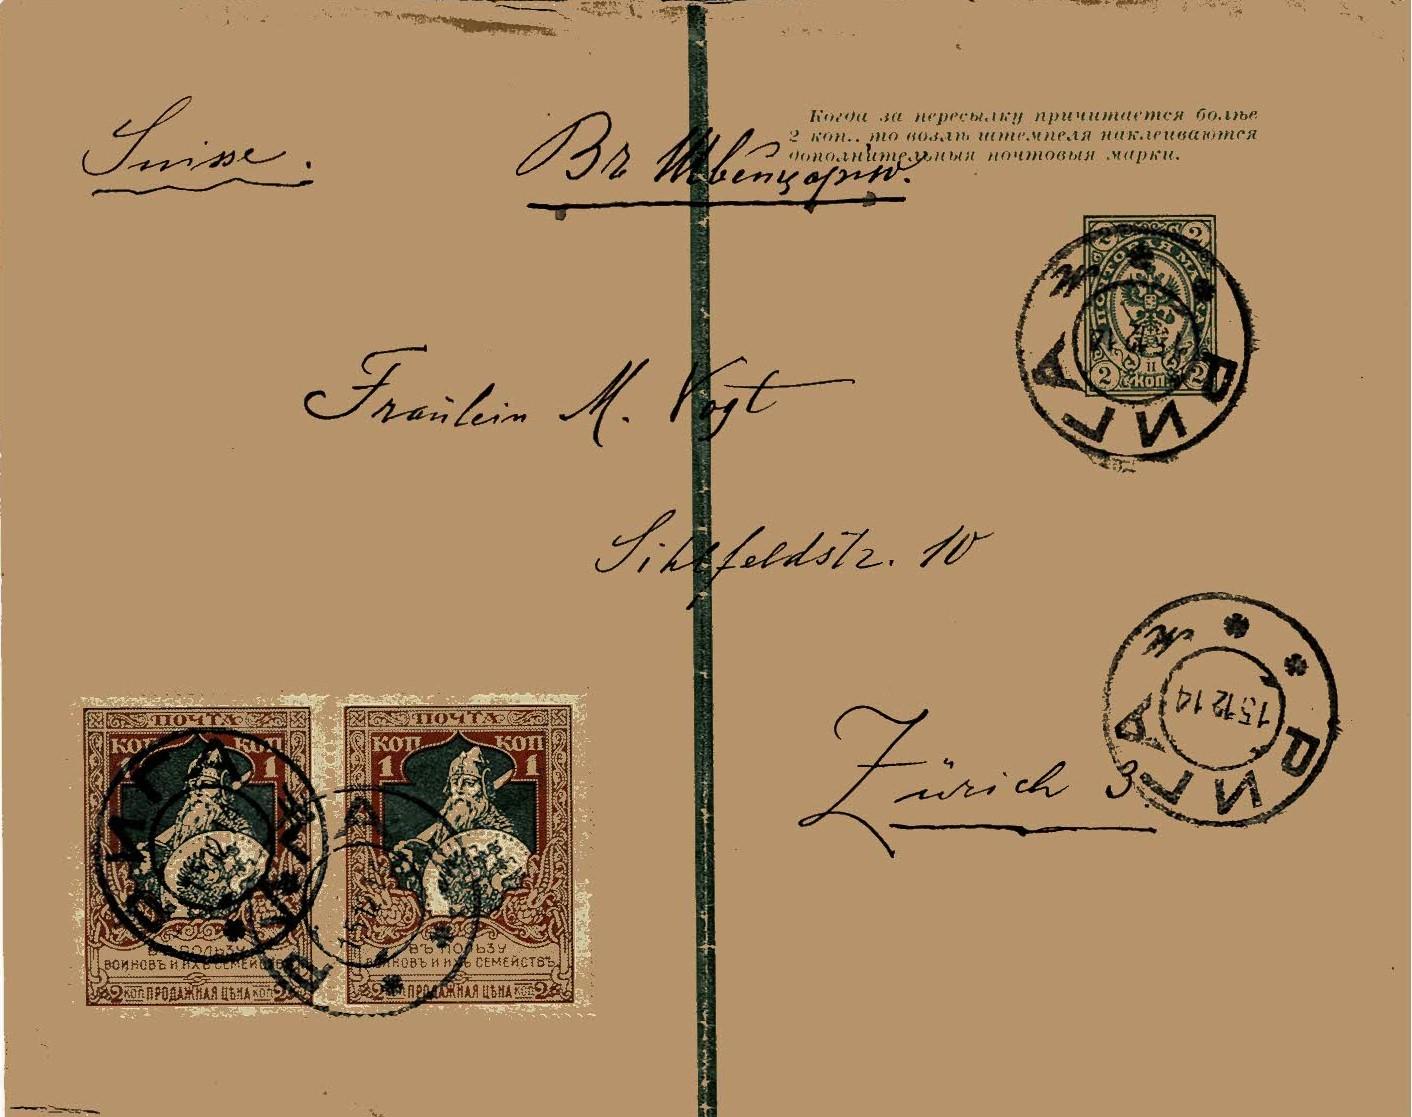 Suisse.
Въ Швейцарію.
Когда за пересылку причитается болѣе
2 коп., то возлѣ штемпеля наклеиваются
дополнительныя почтовыя марки.
2 2
ПОЧТОВАЯ МАРКА
2 КОП. 2
РИГА
15 12 14
Fräulein M. Vogt
Sihlfeldstr. 10
Zürich 3.
РИГА
15 12 14
ПОЧТА
КОП КОП
1 1
ВЪ ПОЛЬЗУ
ВОИНОВЪ И ИХЪ СЕМЕЙСТВЪ
2 КОП ПРОДАЖНАЯ ЦѢНА КОП 2
ПОЧТА
КОП КОП
1 1
ВЪ ПОЛЬЗУ
ВОИНОВЪ И ИХЪ СЕМЕЙСТВЪ
2 КОП ПРОДАЖНАЯ ЦѢНА КОП 2
РИГА
РИГА